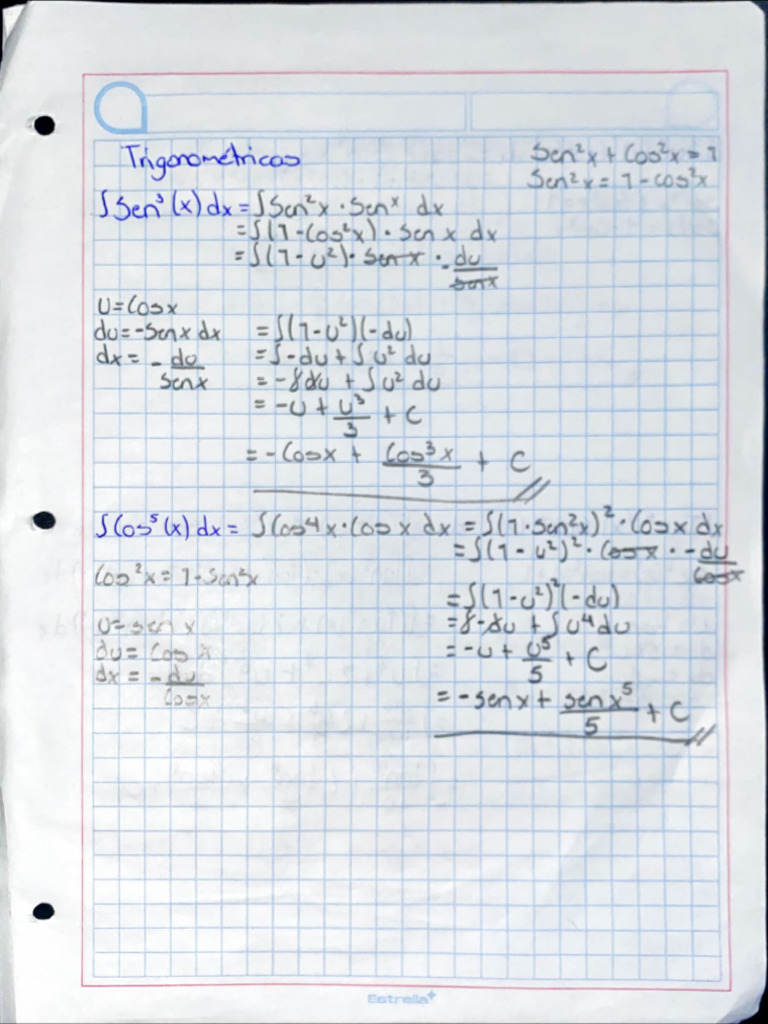 Trigonométricas
Sen²x + Cos²x = 1
Sen²x = 1 - cos²x
∫Sen³(x) dx = ∫Sen²x · Senˣ dx
= ∫(1 - Cos²x) · sen x dx
= ∫(1 - u²) · sen x · -du/sen x
u = Cos x
du = -Sen x dx
dx = -du/Sen x
= ∫(1 - u²)(-du)
= ∫-du + ∫u² du
= -∫du + ∫u² du
= -u + u³/3 + C
= -Cos x + Cos³x/3 + C
∫Cos⁵(x) dx = ∫Cos⁴x · Cos x dx = ∫(1 · sen²x)² · Cos x dx
= ∫(1 - u²)² · Cos x · -du/Cos x
Cos²x = 1 - Sen²x
u = sen x
du = Cos x
dx = -du/Cos x
= ∫(1 - u²)²(-du)
= ∫-du + ∫u⁴ du
= -u + u⁵/5 + C
= -sen x + sen x⁵/5 + C
Estrella